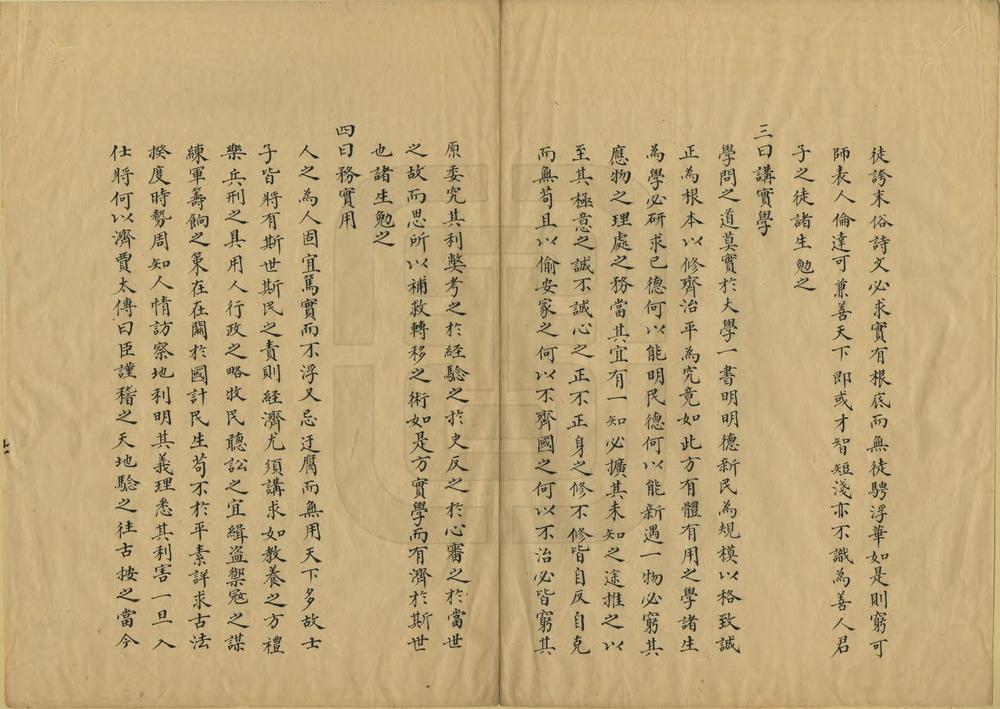 徒誇末俗詩文必求實有根底而無徒騁浮華如是則窮可
師表人倫達可兼善天下即或才智短淺亦不識為善人君
子之徒諸生勉之
三曰講實學
學問之道莫實於大學一書明明德新民為規模以格致誠
正為根本以修齊治平為究竟如此方有體有用之學諸生
為學必研求已德何以能明民德何以能新遇一物必窮其
應物之理處之務當其宜有一知必擴其未知之途推之以
至其極意之誠不誠心之正不正身之修不修皆自反自克
而無苟且以偷安家之何以不齊國之何以不治必皆窮其
原委究其利弊考之於経驗之於史反之於心審之於當世
之故而思所以補救轉移之術如是方實學而有濟於斯世
也諸生勉之
四曰務實用
人之為人固宜篤實而不浮又忌迂腐而無用天下多故士
子皆將有斯世斯民之責則経濟尤須講求如教養之方禮
樂兵刑之具用人行政之略牧民聽訟之宜緝盜禦寇之謀
練軍籌餉之策在在關於國計民生苟不於平素詳求古法
揆度時勢周知人情訪察地利明其義理悉其利害一旦入
仕將何以濟賈太傅曰臣謹稽之天地驗之往古按之當今